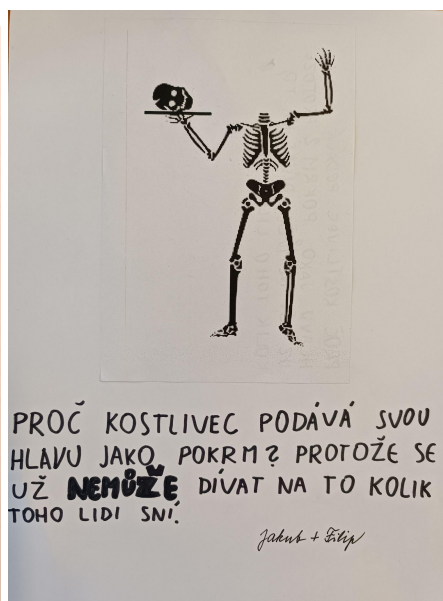 PROČ KOSTLIVEC PODÁVÁ SVOU
HLAVU JAKO POKRM? PROTOŽE SE
UŽ NEMŮŽE DÍVAT NA TO KOLIK
TOHO LIDI SNÍ.
Jakub + Filip